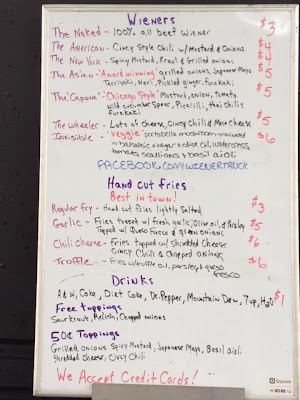 Wieners
The Naked - 100% all beef wiener $3
The American - Cincy Style Chili w/ Mustard & Onions $4
The New York - Spicy Mustard, Kraut & Grilled onions $4
The Asian - "Award winning" grilled onions, Japanese Mayo $5
Terriyaki, Nori, Pickled ginger, furakaki
The "Capone" - "Chicago Style" Mustard, onion, Tomato $5
wild cucumber Spear, Picalilli, thai chilis
furakaki
The Wheeler - Lots of cheese, Cincy Chili & More Cheese $5
Invisible - "Veggie" portabella mushroom - marinated $6
in balsamic vinegar + olive oil, watercress,
banana scallions + basil aioli
FACEBOOK.COM/WIENERTRUCK
Hand Cut fries
Best in town!
Regular fry - Hand cut fries lightly Salted $3
Garlic - Fries tossed w/ fresh garlic, olive oil & Parsley $5
Topped w/ Queso Fresco & green onions
Chili cheese - Fries topped w/ Shredded Cheese $6
Cincy Chili & Chopped onions
Truffle - Fries w/ truffle oil, parsley & queso fresco $6
Drinks
A & W, Coke, Diet Coke, Dr. Pepper, Mountain Dew, 7up, H2O $1
Free toppings
Saurkraut, Relish, Chopped onions
50¢ Toppings
Grilled onions Spicy Mustard, Japanese Mayo, Basil aioli
Shredded Cheese, Cincy Chili
We Accept Credit Cards!
Square